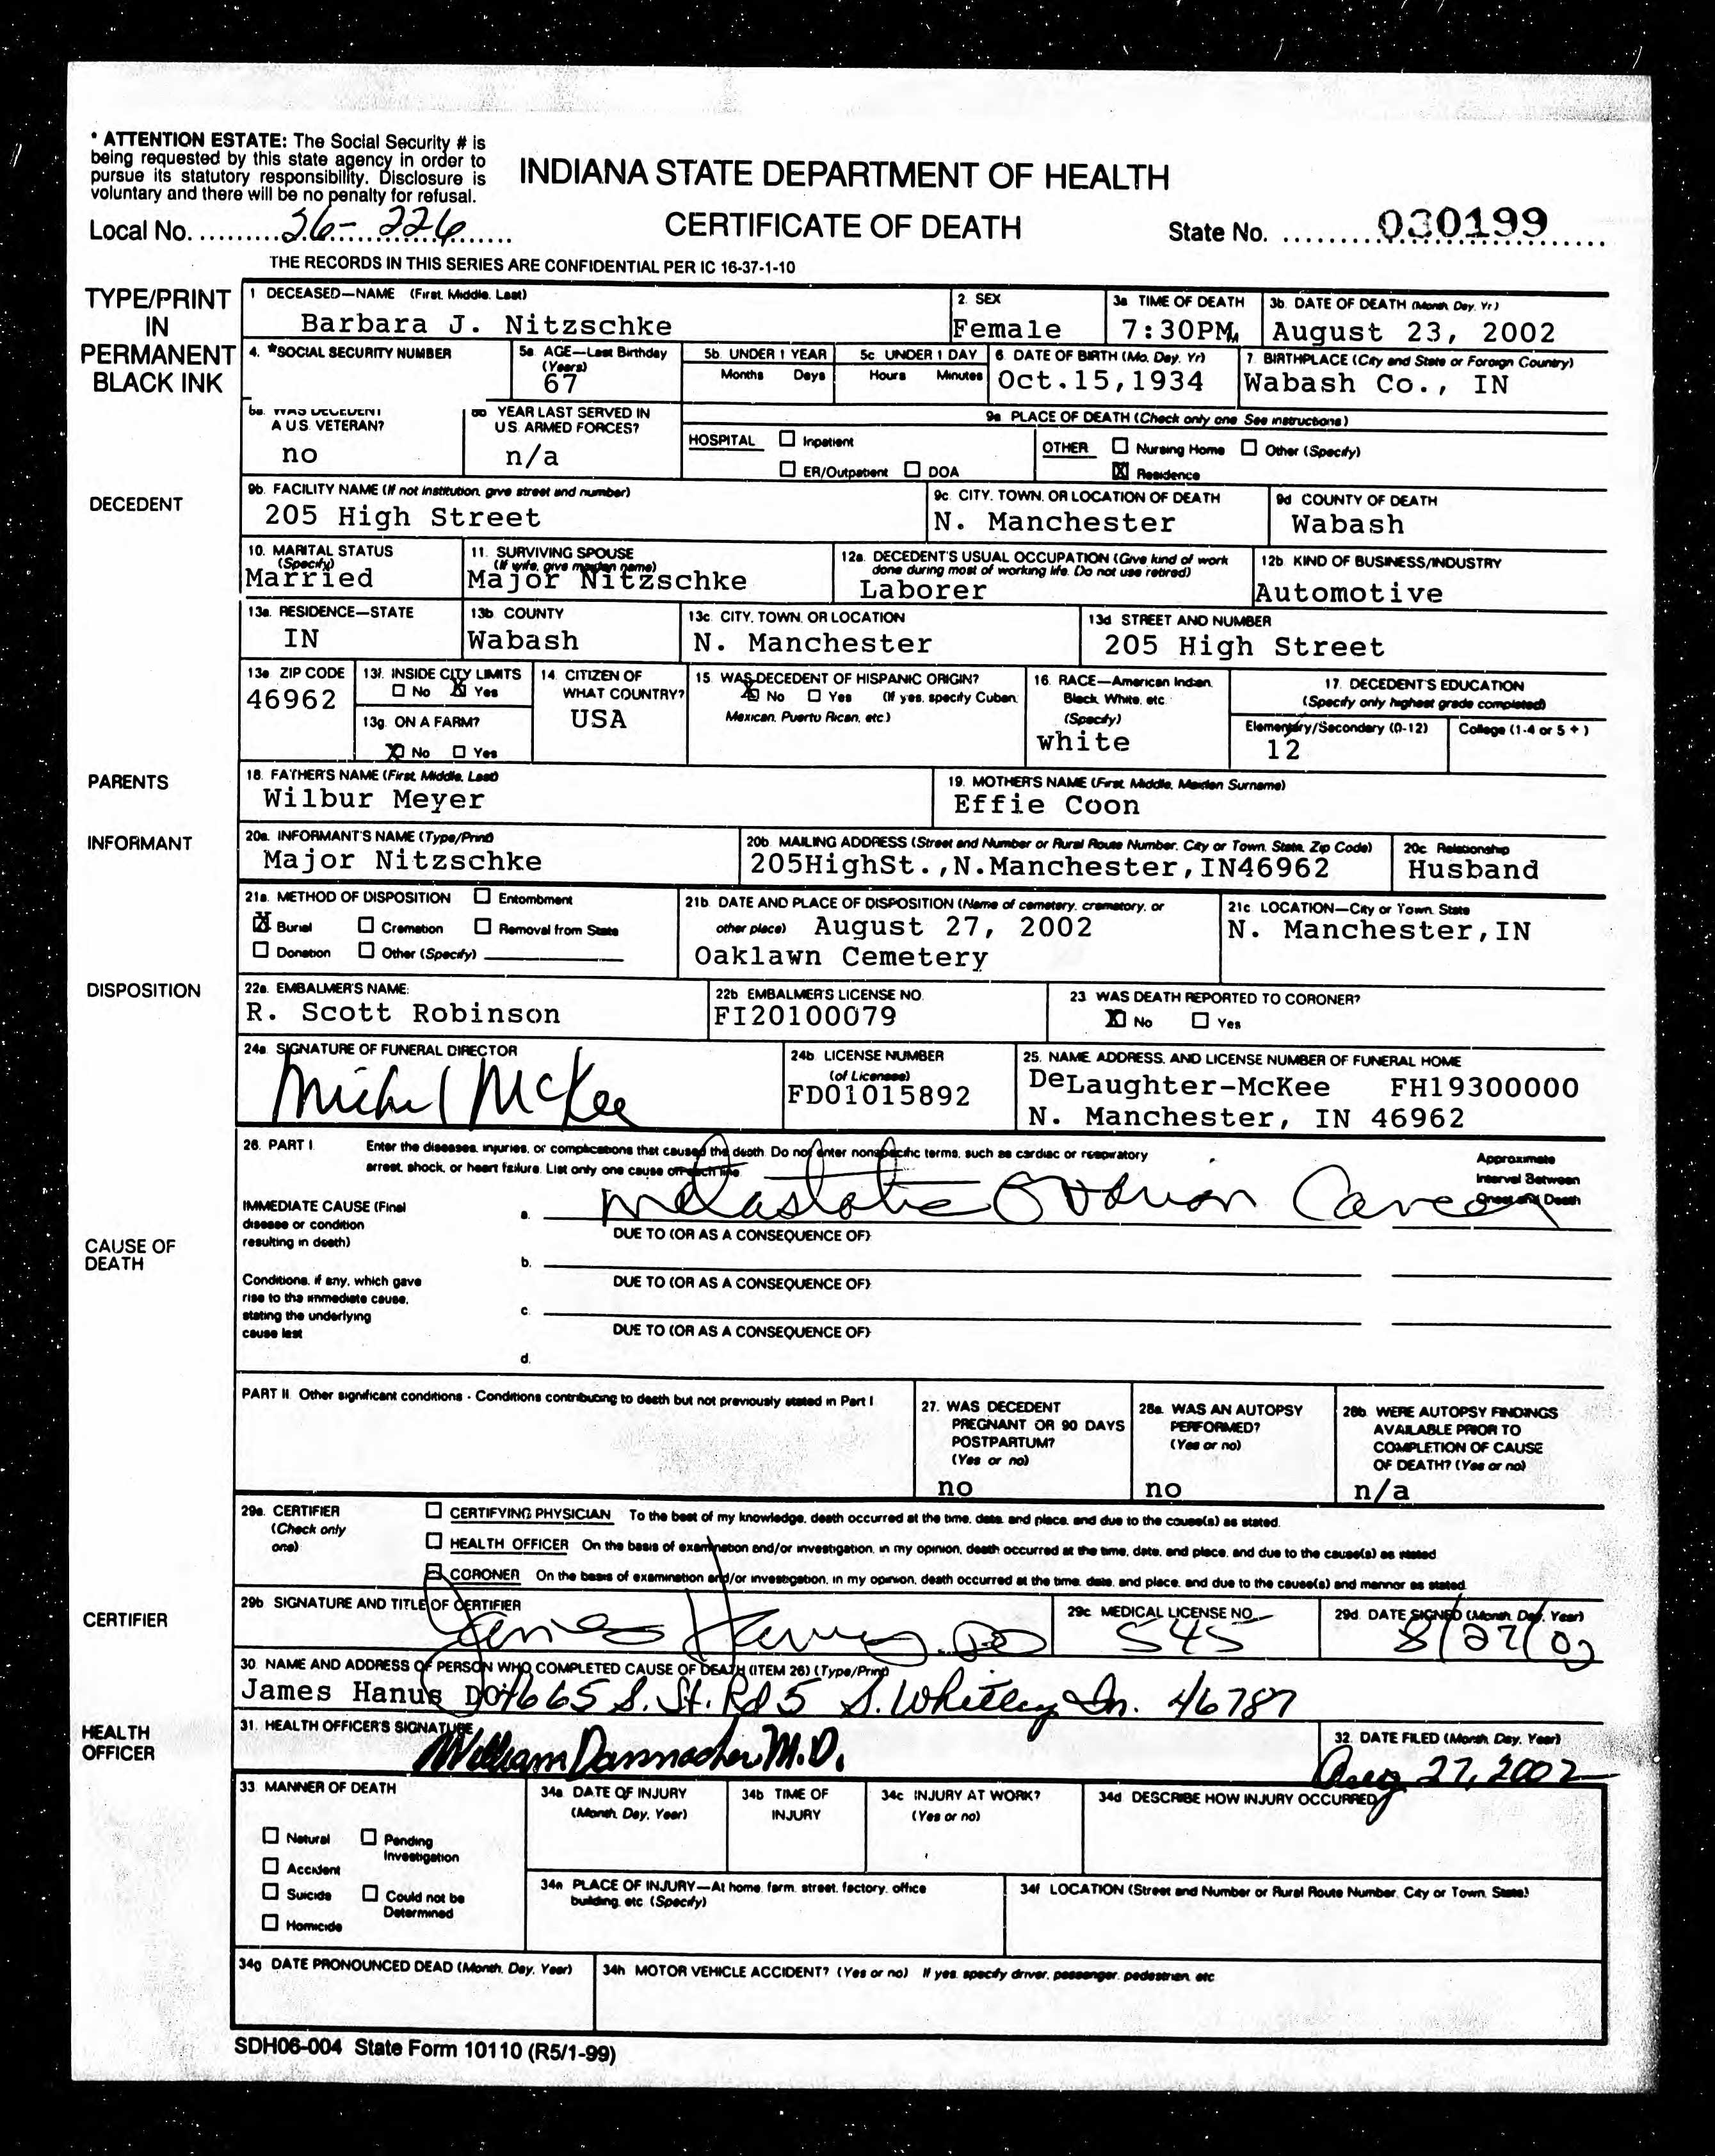 * ATTENTION ESTATE: The Social Security # is
being requested by this state agency in order to
pursue its statutory responsibility. Disclosure is
voluntary and there will be no penalty for refusal.
INDIANA STATE DEPARTMENT OF HEALTH
CERTIFICATE OF DEATH
Local No. 36-226
State No. 030199
THE RECORDS IN THIS SERIES ARE CONFIDENTIAL PER IC 16-37-1-10
TYPE/PRINT
IN
PERMANENT
BLACK INK
1 DECEASED—NAME (First, Middle, Last)
Barbara J. Nitzschke
2. SEX
Female
3a TIME OF DEATH
7:30PM
3b. DATE OF DEATH (Month, Day, Yr)
August 23, 2002
4. *SOCIAL SECURITY NUMBER
5a. AGE—Last Birthday
(Years)
67
5b. UNDER 1 YEAR
Months Days
5c UNDER 1 DAY
Hours Minutes
6. DATE OF BIRTH (Mo, Day, Yr)
Oct.15,1934
7. BIRTHPLACE (City and State or Foreign Country)
Wabash Co., IN
WAS DECEDENT
A U.S. VETERAN?
no
YEAR LAST SERVED IN
U.S. ARMED FORCES?
n/a
9a PLACE OF DEATH (Check only one See instructions)
HOSPITAL Inpatient
ER/Outpatient DOA
OTHER Nursing Home Other (Specify)
X Residence
DECEDENT
9b. FACILITY NAME (If not institution, give street and number)
205 High Street
9c. CITY, TOWN, OR LOCATION OF DEATH
N. Manchester
9d COUNTY OF DEATH
Wabash
10. MARITAL STATUS
(Specify)
Married
11. SURVIVING SPOUSE
(If wife, give maiden name)
Major Nitzschke
12a. DECEDENT'S USUAL OCCUPATION (Give kind of work
done during most of working life. Do not use retired)
Laborer
12b. KIND OF BUSINESS/INDUSTRY
Automotive
13a. RESIDENCE—STATE
IN
13b COUNTY
Wabash
13c. CITY, TOWN, OR LOCATION
N. Manchester
13d STREET AND NUMBER
205 High Street
13e ZIP CODE
46962
13f. INSIDE CITY LIMITS
No X Yes
13g. ON A FARM?
X No Yes
14. CITIZEN OF
WHAT COUNTRY?
USA
15. WAS DECEDENT OF HISPANIC ORIGIN?
X No Yes (If yes, specify Cuban,
Mexican, Puerto Rican, etc.)
16. RACE—American Indian,
Black, White, etc.
(Specify)
white
17. DECEDENT'S EDUCATION
(Specify only highest grade completed)
Elementary/Secondary (0-12)
12
College (1-4 or 5 + )
PARENTS
18. FATHER'S NAME (First, Middle, Last)
Wilbur Meyer
19. MOTHER'S NAME (First, Middle, Maiden Surname)
Effie Coon
INFORMANT
20a. INFORMANT'S NAME (Type/Print)
Major Nitzschke
20b. MAILING ADDRESS (Street and Number or Rural Route Number, City or Town, State, Zip Code)
205HighSt.,N.Manchester,IN46962
20c Relationship
Husband
21a. METHOD OF DISPOSITION Entombment
X Burial Cremation Removal from State
Donation Other (Specify)
21b. DATE AND PLACE OF DISPOSITION (Name of cemetery, crematory, or
other place) August 27, 2002
Oaklawn Cemetery
21c LOCATION—City or Town, State
N. Manchester,IN
DISPOSITION
22a. EMBALMER'S NAME:
R. Scott Robinson
22b EMBALMER'S LICENSE NO.
FI20100079
23. WAS DEATH REPORTED TO CORONER?
X No Yes
24a. SIGNATURE OF FUNERAL DIRECTOR
Michael McKee
24b. LICENSE NUMBER
(of Licensee)
FD01015892
25. NAME, ADDRESS, AND LICENSE NUMBER OF FUNERAL HOME
DeLaughter-McKee FH19300000
N. Manchester, IN 46962
26. PART I. Enter the diseases, injuries, or complications that caused the death. Do not enter nonspecific terms, such as cardiac or respiratory
arrest, shock, or heart failure. List only one cause on each line.
Approximate
Interval Between
Onset and Death
CAUSE OF
DEATH
IMMEDIATE CAUSE (Final
disease or condition
resulting in death)
a. Metastatic Ovarian Cancer
DUE TO (OR AS A CONSEQUENCE OF)
b.
DUE TO (OR AS A CONSEQUENCE OF)
Conditions, if any, which gave
rise to the immediate cause,
stating the underlying
cause last
c.
DUE TO (OR AS A CONSEQUENCE OF)
d.
PART II. Other significant conditions - Conditions contributing to death but not previously stated in Part I
27. WAS DECEDENT
PREGNANT OR 90 DAYS
POSTPARTUM?
(Yes or no)
no
28a. WAS AN AUTOPSY
PERFORMED?
(Yes or no)
no
28b. WERE AUTOPSY FINDINGS
AVAILABLE PRIOR TO
COMPLETION OF CAUSE
OF DEATH? (Yes or no)
n/a
CERTIFIER
29a. CERTIFIER
(Check only
one)
CERTIFYING PHYSICIAN To the best of my knowledge, death occurred at the time, date, and place, and due to the cause(s) as stated.
HEALTH OFFICER On the basis of examination and/or investigation, in my opinion, death occurred at the time, date, and place, and due to the cause(s) as stated.
CORONER On the basis of examination and/or investigation, in my opinion, death occurred at the time, date, and place, and due to the cause(s) and manner as stated.
29b SIGNATURE AND TITLE OF CERTIFIER
James Hanus DO
29c MEDICAL LICENSE NO.
545
29d. DATE SIGNED (Month, Day, Year)
8/27/02
30. NAME AND ADDRESS OF PERSON WHO COMPLETED CAUSE OF DEATH (ITEM 26) (Type/Print)
James Hanus DO 4665 S. St. Rd 5 S. Whitley In. 46787
HEALTH
OFFICER
31. HEALTH OFFICER'S SIGNATURE
William Dannacher M.D.
32. DATE FILED (Month, Day, Year)
Aug 27, 2002
33. MANNER OF DEATH
Natural Pending
Investigation
Accident
Suicide Could not be
Determined
Homicide
34a DATE OF INJURY
(Month, Day, Year)
34b TIME OF
INJURY
34c INJURY AT WORK?
(Yes or no)
34d DESCRIBE HOW INJURY OCCURRED
34e PLACE OF INJURY—At home, farm, street, factory, office
building, etc. (Specify)
34f LOCATION (Street and Number or Rural Route Number, City or Town, State)
34g DATE PRONOUNCED DEAD (Month, Day, Year)
34h MOTOR VEHICLE ACCIDENT? (Yes or no) If yes, specify driver, passenger, pedestrian, etc.
SDH06-004 State Form 10110 (R5/1-99)